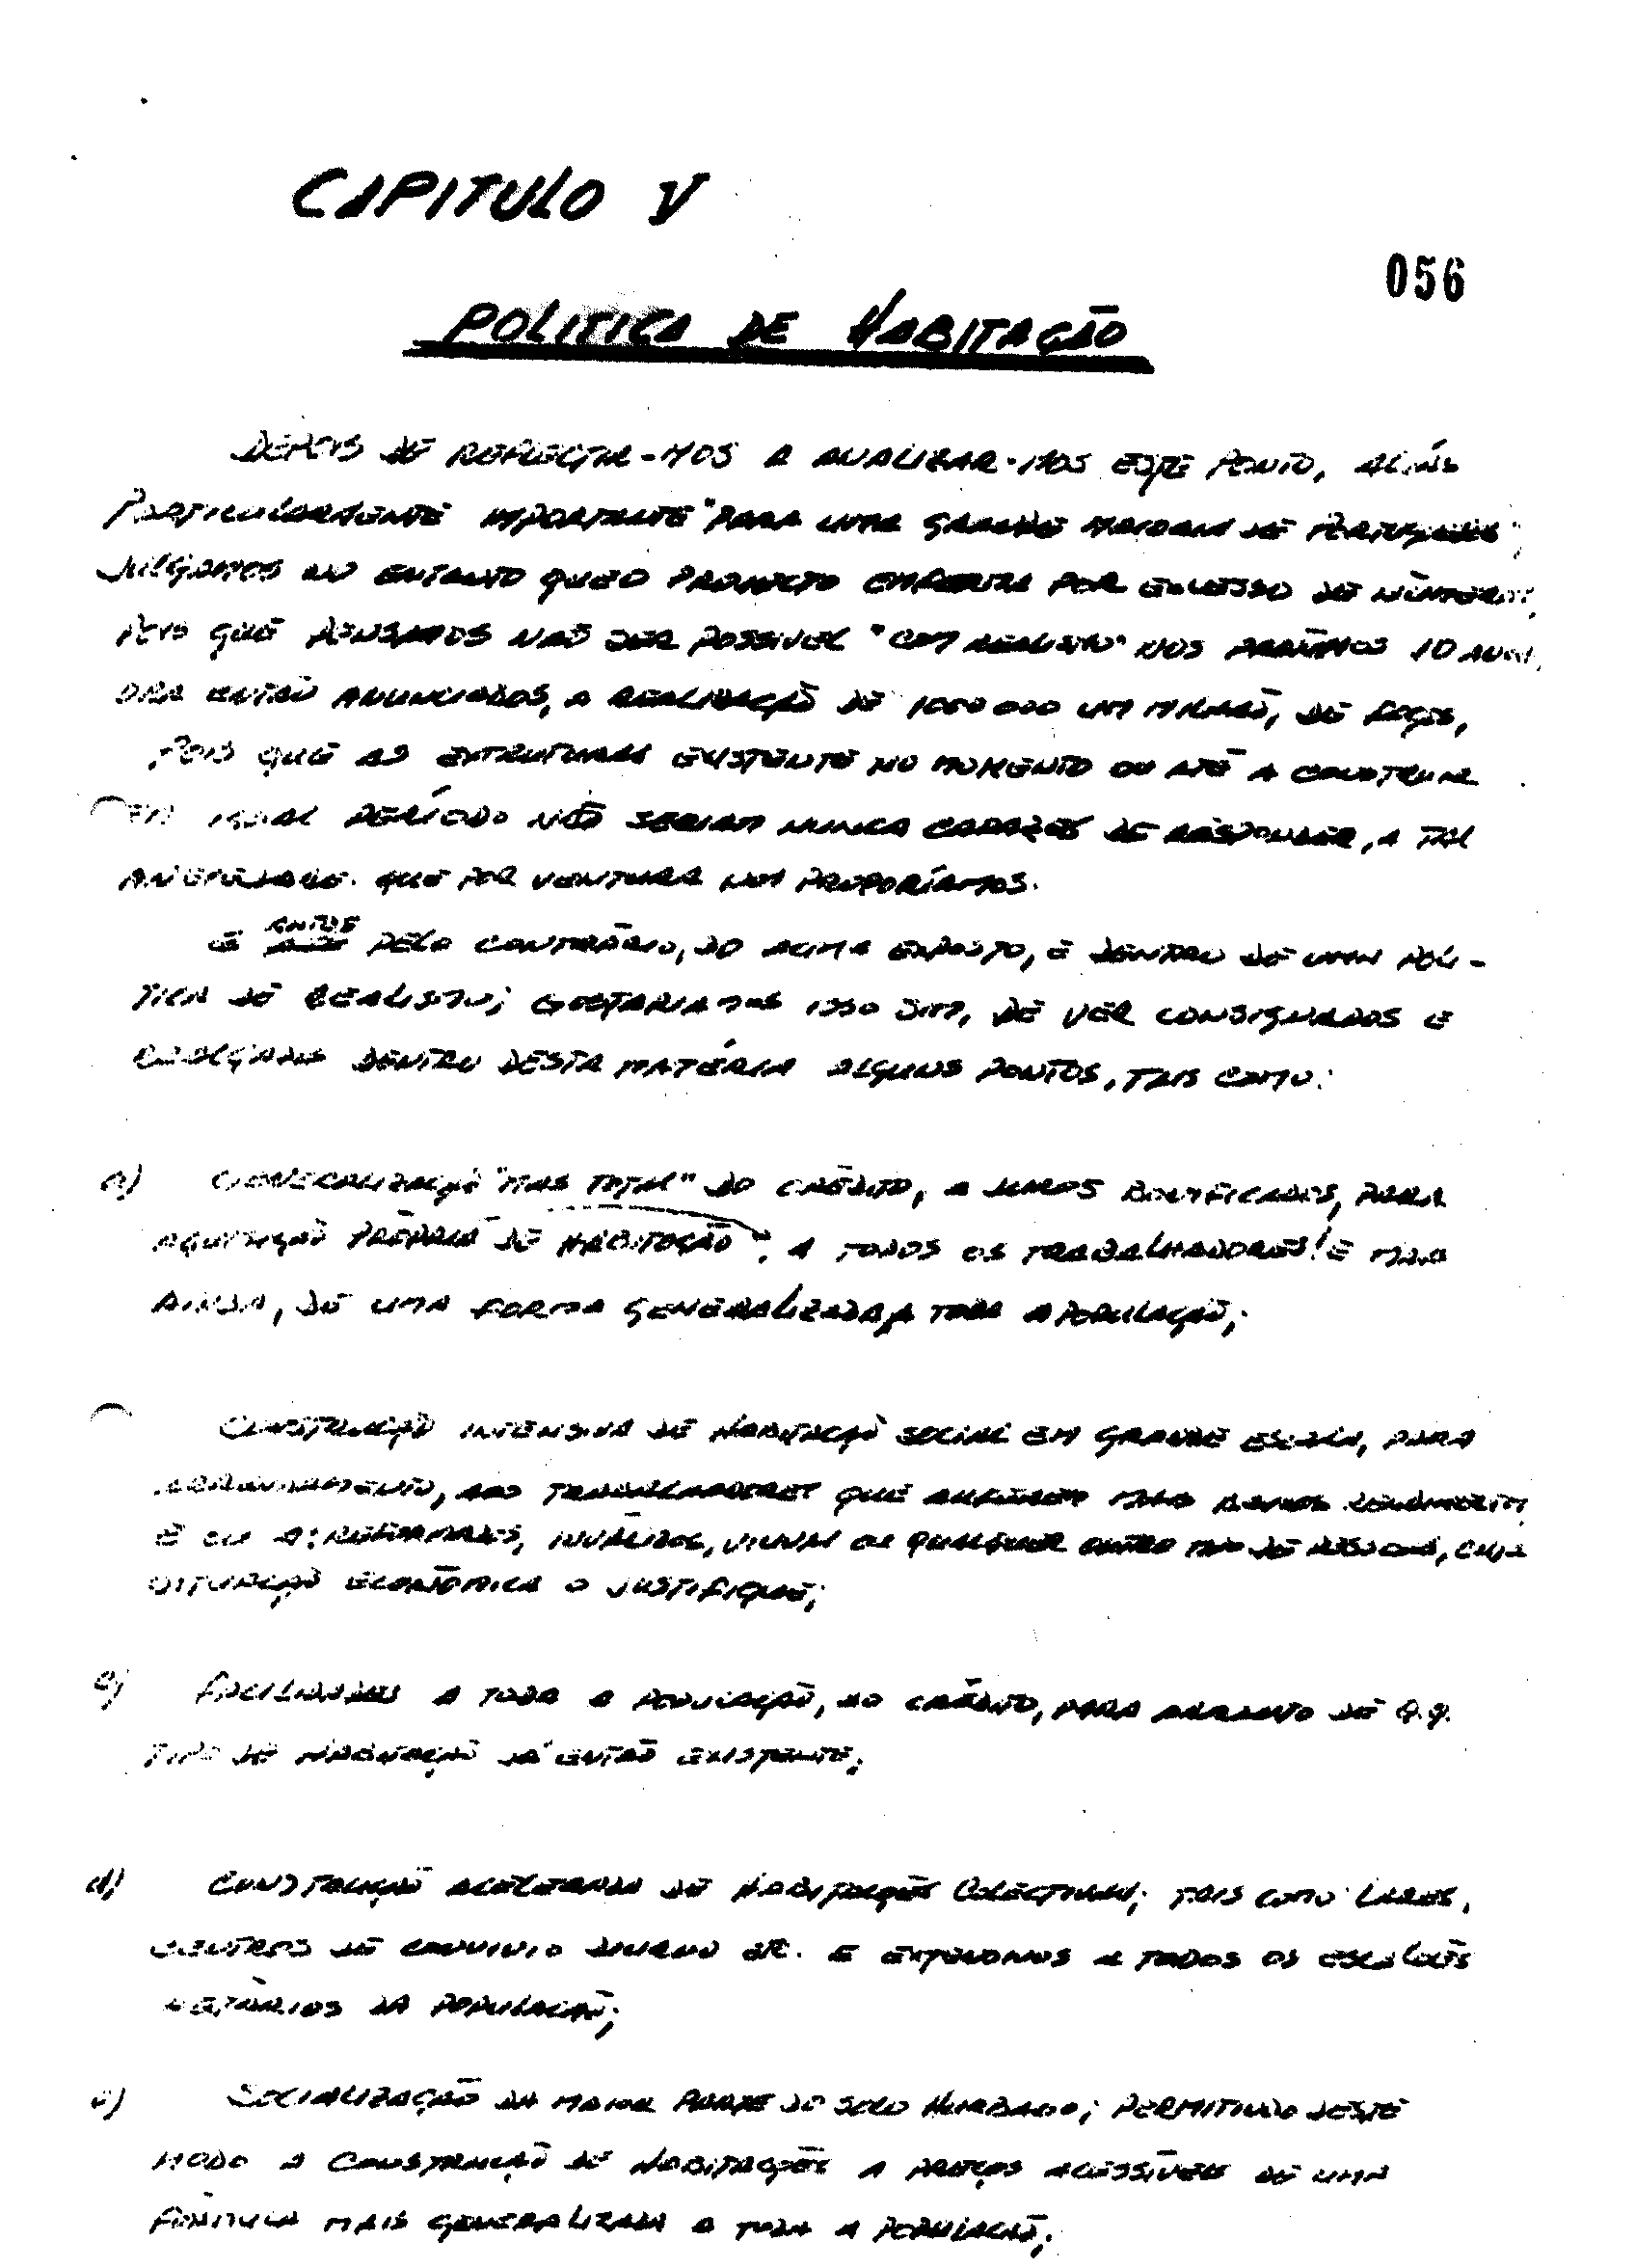 CAPITULO V
056
POLITICA DE HABITAÇÃO
DEPOIS DE REFLECTIR-MOS A ANALIZAR-MOS ESTE PONTO, ALIÁS
PARTICULARMENTE IMPORTANTE "PARA UMA GRANDE MAIORIA DE PORTUGUESES",
JULGAMOS NO ENTANTO QUE O PROJECTO ENFERMA POR EXCESSO DE
POIS QUE PENSAMOS NÃO SER POSSIVEL "COM REALISMO" NOS PRÓXIMOS 10 ANOS,
ORA ENTÃO ANUNCIADOS, A REALIZAÇÃO DE 1000 000 UM MILHÃO, DE FOGOS,
POIS QUE AS ESTRUTURAS EXISTENTE NO MOMENTO OU ATÉ A CONSTRUIR
EM IGUAL PERÍODO NÃO SERIAM NUNCA CAPAZES DE RESPONDER, A TAL
QUE POR VENTURA NOS PROPORÍAMOS.
É ANTES PELO CONTRÁRIO, DO ACIMA EXPOSTO, E DENTRO DE UMA POLI-
TICA DE REALISMO; GOSTARIAMOS ISSO SIM, DE VER CONSIGNADOS E
DENTRO DESTA MATÉRIA ALGUNS PONTOS, TAIS COMO:
a) GENERALIZAÇÃO "MAS TOTAL" DO CRÉDITO, A JUROS BONIFICADOS, PARA
AQUISIÇÃO PRÓPRIA DE HABITAÇÃO", A TODOS OS TRABALHADORES! E MAIS
AINDA, DE UMA FORMA GENERALIZADA A TODA A POPULAÇÃO;
CONSTRUÇÃO INTENSIVA DE HABITAÇÃO SOCIAL EM GRANDE ESCALA, PARA
ARRENDAMENTO, AOS TRABALHADORES QUE AUFEREM MAIS BAIXOS RENDIMENTOS
E OU A: REFORMADOS, INVÁLIDOS, VIUVAS OU QUALQUER OUTRO TIPO DE PESSOAS, CUJA
SITUAÇÃO ECONÓMICA O JUSTIFIQUE;
c) FACILIDADES A TODA A POPULAÇÃO, AO CRÉDITO, PARA ARRANJO DE Q.Q.
TIPO DE HABITAÇÃO JÁ ENTÃO EXISTENTE;
d) CONSTRUÇÃO ACELERADA DE HABITAÇÕES COLECTIVAS; TAIS COMO LARES,
CENTROS DE CONVIVIO DIURNO ETC. E EXTENDEMOS A TODOS OS ESCALÕES
ETÁRIOS DA POPULAÇÃO;
e) SOCIALIZAÇÃO DA MAIOR PARTE DO SOLO HURBANO; PERMITINDO DESTE
MODO A CONSTRUÇÃO DE HABITAÇÕES A PREÇOS ACESSÍVEIS DE UMA
FÓRMULA MAIS GENERALIZADA A TODA A POPULAÇÃO;